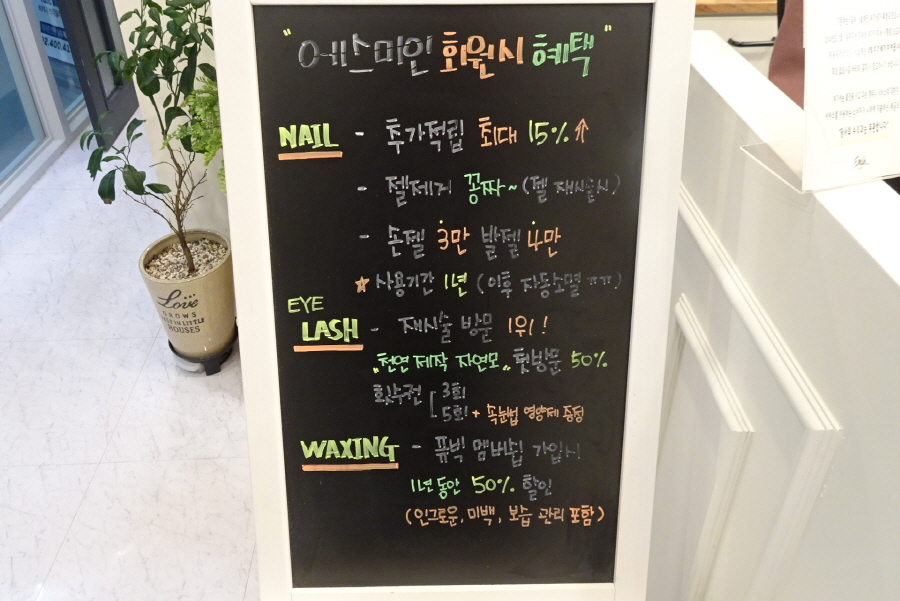 "에스마인 회원시 혜택"
NAIL - 추가적립 최대 15%↑
- 젤제거 꽁짜~ (젤 재시술시)
- 손젤 3만 발젤 4만
☆ 사용기간 1년 (이후 자동소멸 ㅠㅠ)
EYE
LASH - 재시술 방문 1위!
"천연 제작 자연모" 첫방문 50%
횟수권 [ 3회
5회 + 속눈썹 영양제 증정
WAXING - 퓨빅 멤버쉽 가입시
1년 동안 50% 할인
(인그로운, 미백, 보습 관리 포함)
Love
GROWS
BEST IN LITTLE
HOUSES